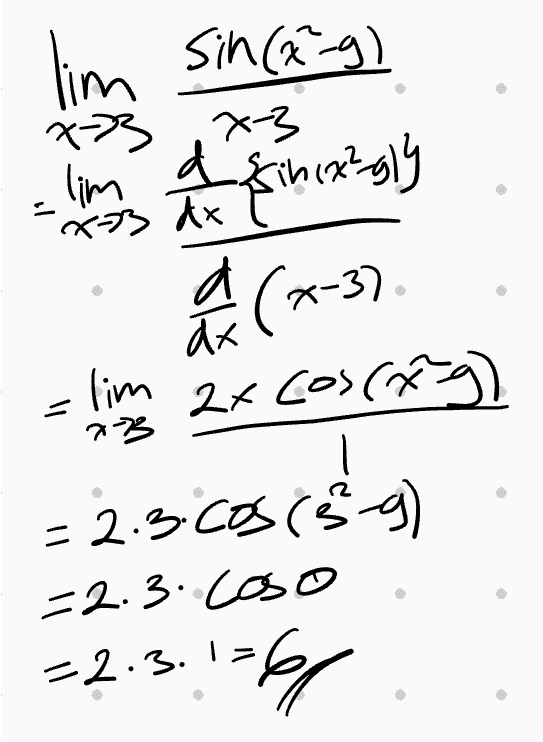 lim x→3 sin(x²-9)/x-3
= lim x→3 d/dx {sin(x²-9)}/d/dx (x-3)
= lim x→3 2x cos(x²-9)/1
= 2.3.cos(3²-9)
= 2.3. cos 0
= 2.3. 1 = 6//